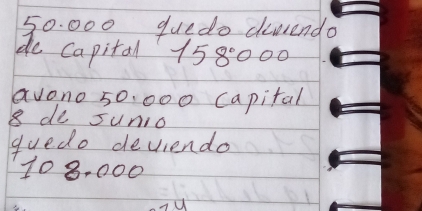 50.000 quedo deviendo
de capital 158.000
avono 50.000 capital
8 de junio
quedo deviendo
108.000